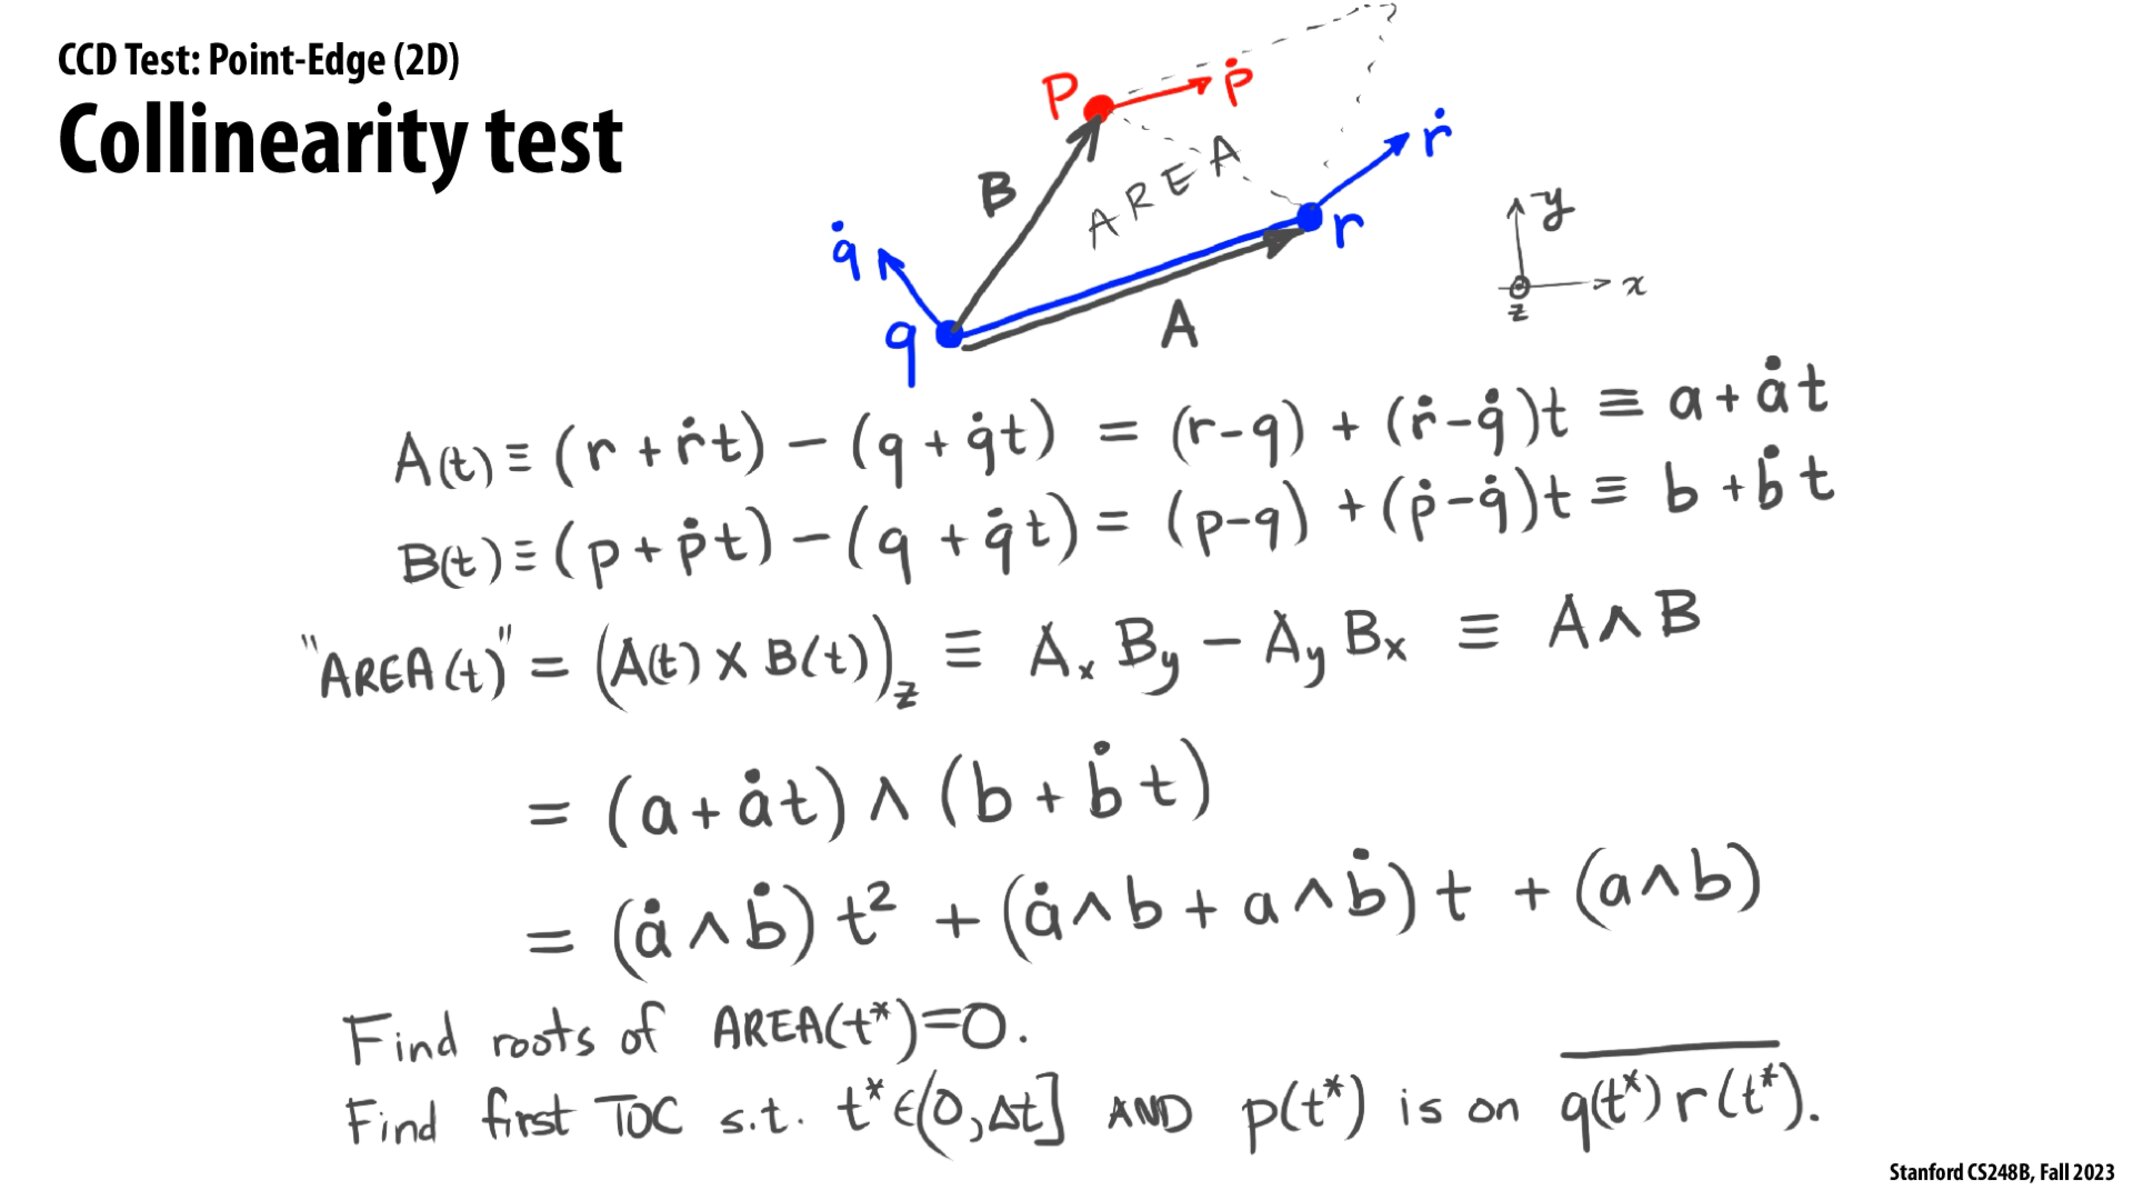 CCD Test: Point-Edge (2D)
Collinearity test
P ṗ
B AREA ṙ
r
q̇
q A
y
x
z
A(t) ≡ (r + ṙt) − (q + q̇t) = (r−q) + (ṙ−q̇)t ≡ a + ȧt
B(t) ≡ (p + ṗt) − (q + q̇t) = (p−q) + (ṗ−q̇)t ≡ b + ḃt
"AREA(t)" = (A(t) × B(t))_z ≡ A_x B_y − A_y B_x ≡ A ∧ B
= (a + ȧt) ∧ (b + ḃt)
= (ȧ ∧ ḃ) t² + (ȧ ∧ b + a ∧ ḃ) t + (a ∧ b)
Find roots of AREA(t*)=0.
Find first TOC s.t. t* ∈ (0, Δt] AND p(t*) is on q(t*) r(t*).
Stanford CS248B, Fall 2023